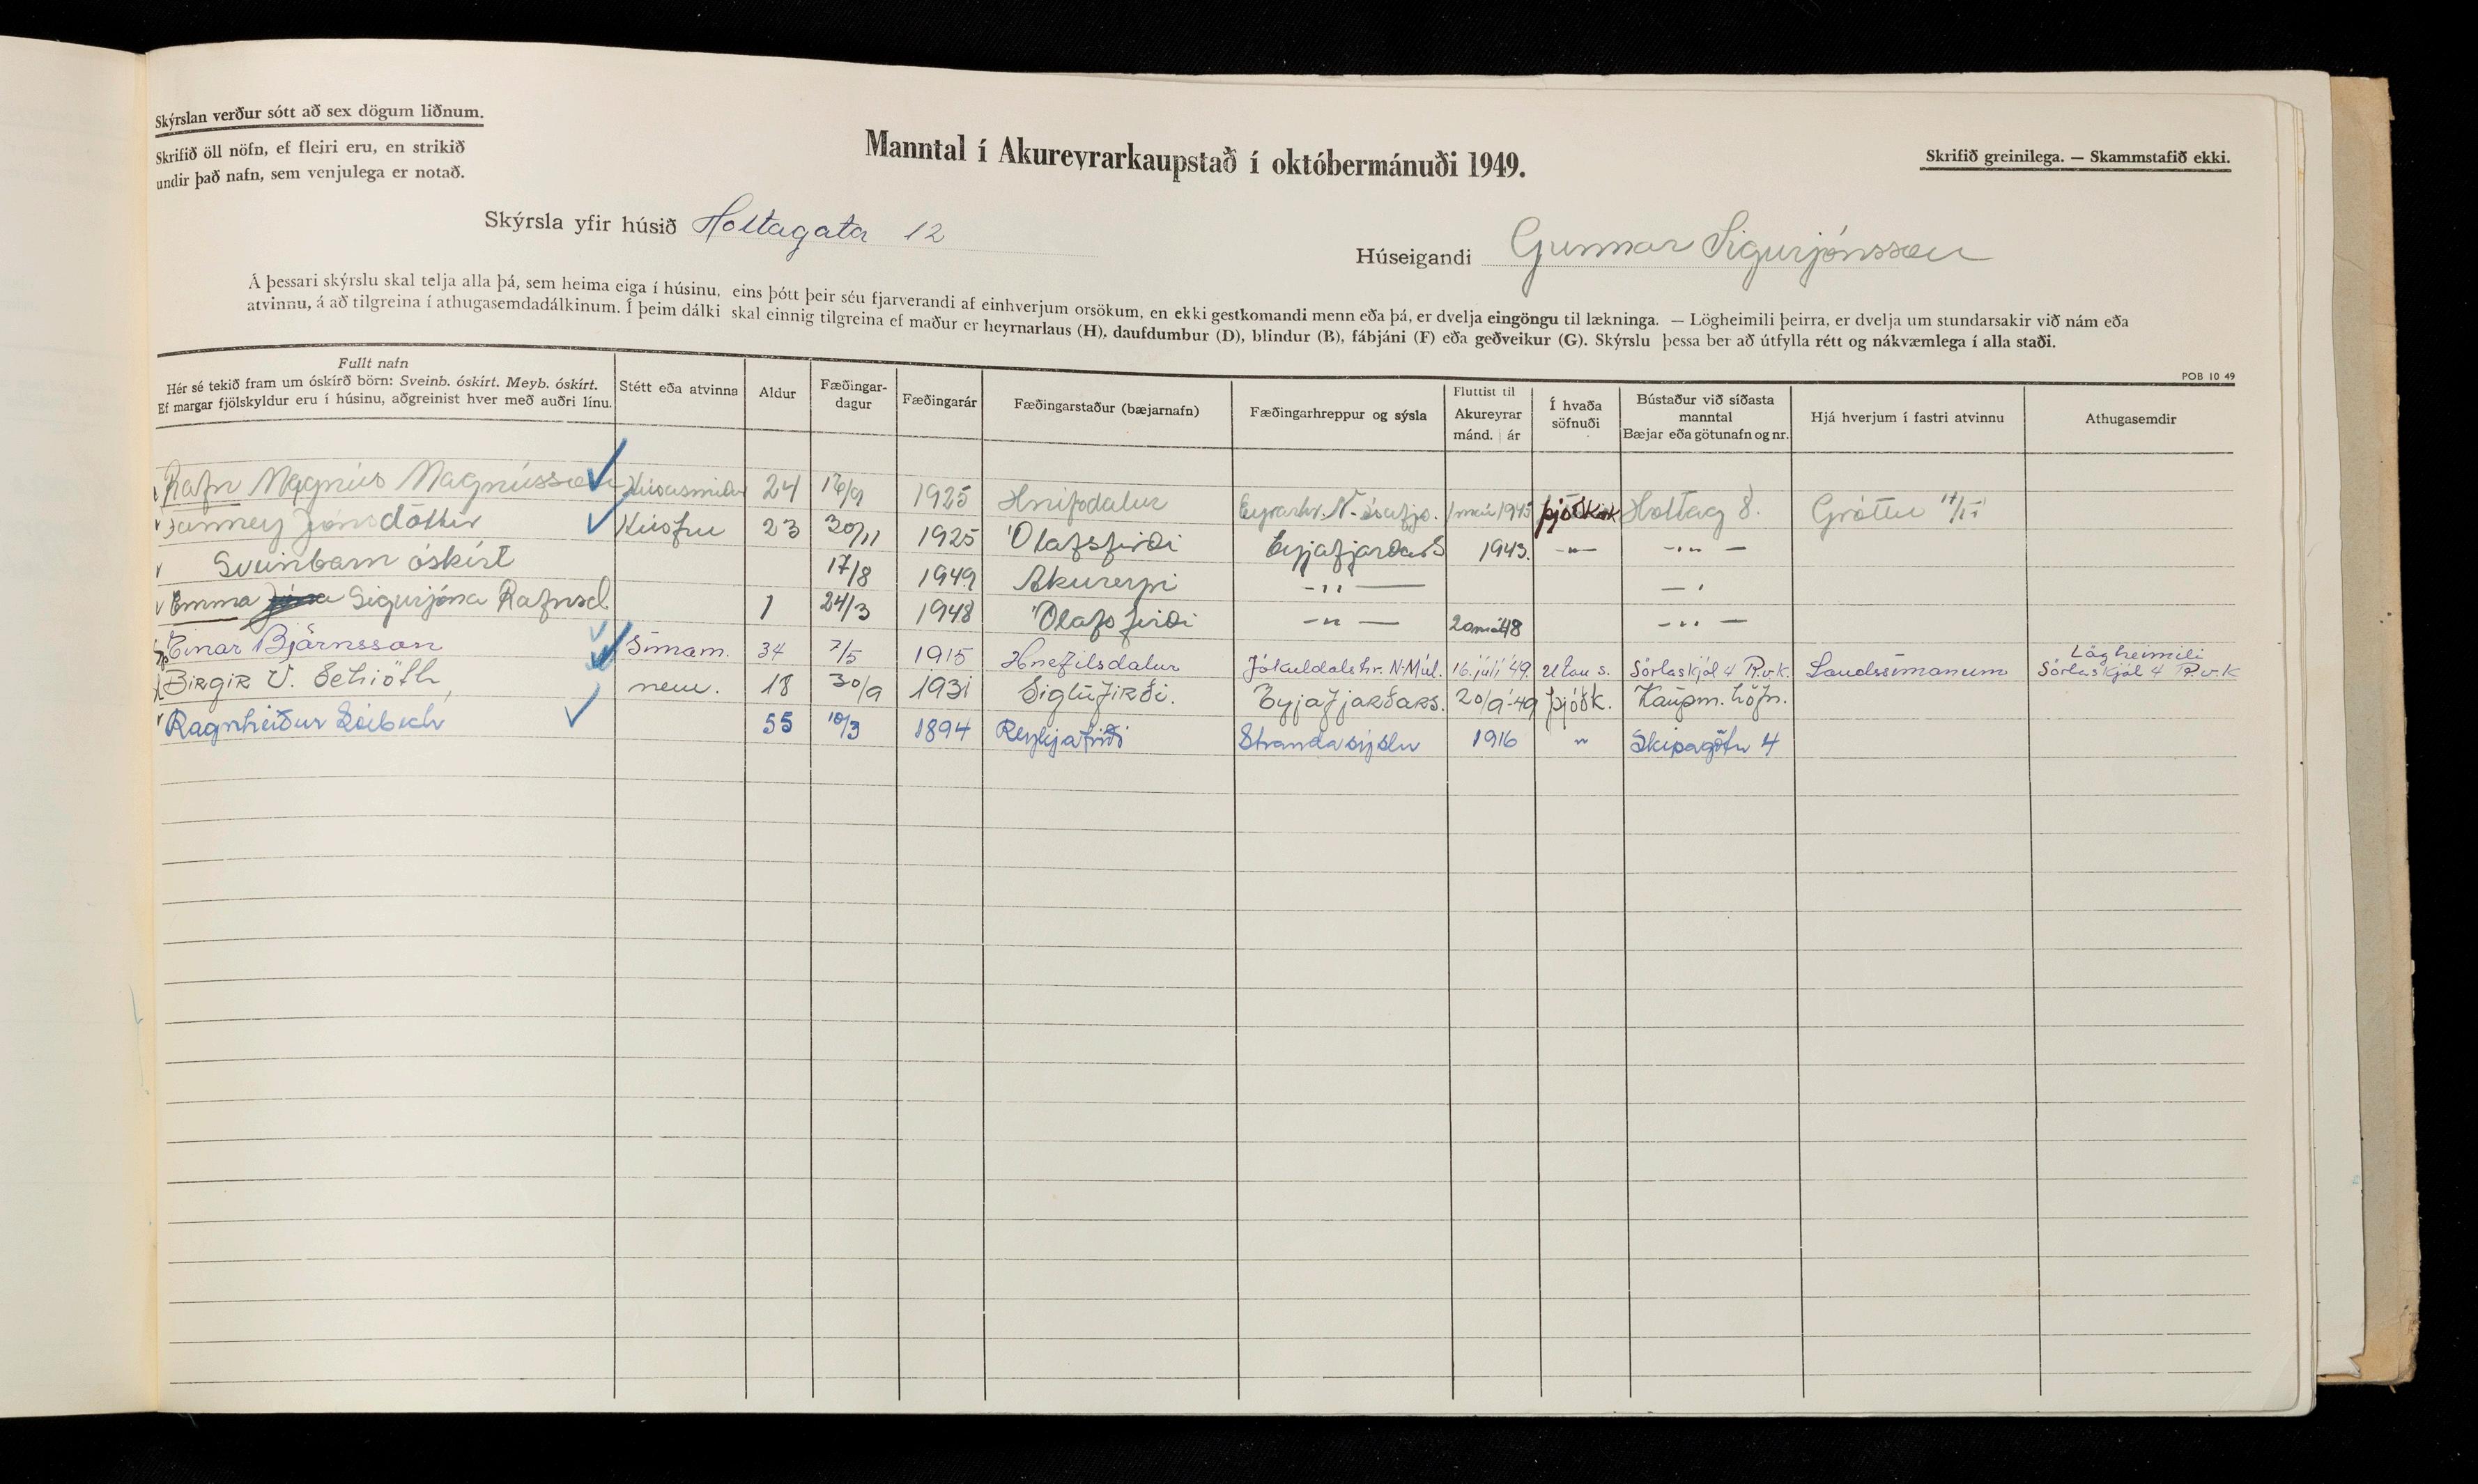 Skýrslan verður sótt að sex dögum liðnum.
Skrifið öll nöfn, ef fleiri eru, en strikið
undir það nafn, sem venjulega er notað.
Manntal í Akureyrarkaupstað í októbermánuði 1949.
Skrifið greinilega. — Skammstafið ekki.
Skýrsla yfir húsið Holtagata 12
Húseigandi Gunnar Sigurjónsson
Á þessari skýrslu skal telja alla þá, sem heima eiga í húsinu, eins þótt þeir séu fjarverandi af einhverjum orsökum, en ekki gestkomandi menn eða þá, er dvelja eingöngu til lækninga. — Lögheimili þeirra, er dvelja um stundarsakir við nám eða
atvinnu, á að tilgreina í athugasemdadálkinum. Í þeim dálki skal einnig tilgreina ef maður er heyrnarlaus (H), daufdumbur (D), blindur (B), fábjáni (F) eða geðveikur (G). Skýrslu þessa ber að útfylla rétt og nákvæmlega í alla staði.
POB 10 49
Fullt nafn
Hér sé tekið fram um óskírð börn: Sveinb. óskírt. Meyb. óskírt.
Ef margar fjölskyldur eru í húsinu, aðgreinist hver með auðri línu.
Stétt eða atvinna
Aldur
Fæðingar-
dagur
Fæðingarár
Fæðingarstaður (bæjarnafn)
Fæðingarhreppur og sýsla
Fluttist til
Akureyrar
mánd. ár
Í hvaða
söfnuði
Bústaður við síðasta
manntal
Bæjar eða götunafn og nr.
Hjá hverjum í fastri atvinnu
Athugasemdir
Rafn Magnús Magnússon Húsasmiður 24 16/9 1925 Hnífsdalur Eyrarhr. N-Ísafjs. 1 maí 1945 þjóðkirk Holtag 8. Gróttu
Fanney Jónsdóttir Húsfrú 23 30/11 1925 Ólafsfirði Eyjafjarðars 1943. -"- -"-
Sveinbarn óskírt 17/8 1949 Akureyri -"- -"-
Emma Sigurjóna Rafnsd. 1 24/3 1948 Ólafsfirði -"- 48 -"-
Einar Björnsson Símam. 34 7/5 1915 Hnefilsdalur Jökuldalshr. N-Múl. 16. júlí '49. Utan s. Sörlaskjól 4 R.v.k. Landssímanum Lögheimili
Sörlaskjól 4 R.v.k
Birgir V. Schiöth nem. 18 30/9 1931 Siglufirði. Eyjafjarðars. 20/9-49 þjóðk. Kaupm. höfn.
Ragnheiður 55 10/3 1894 Reykjafirði Strandasýslu 1916 " Skipagötu 4